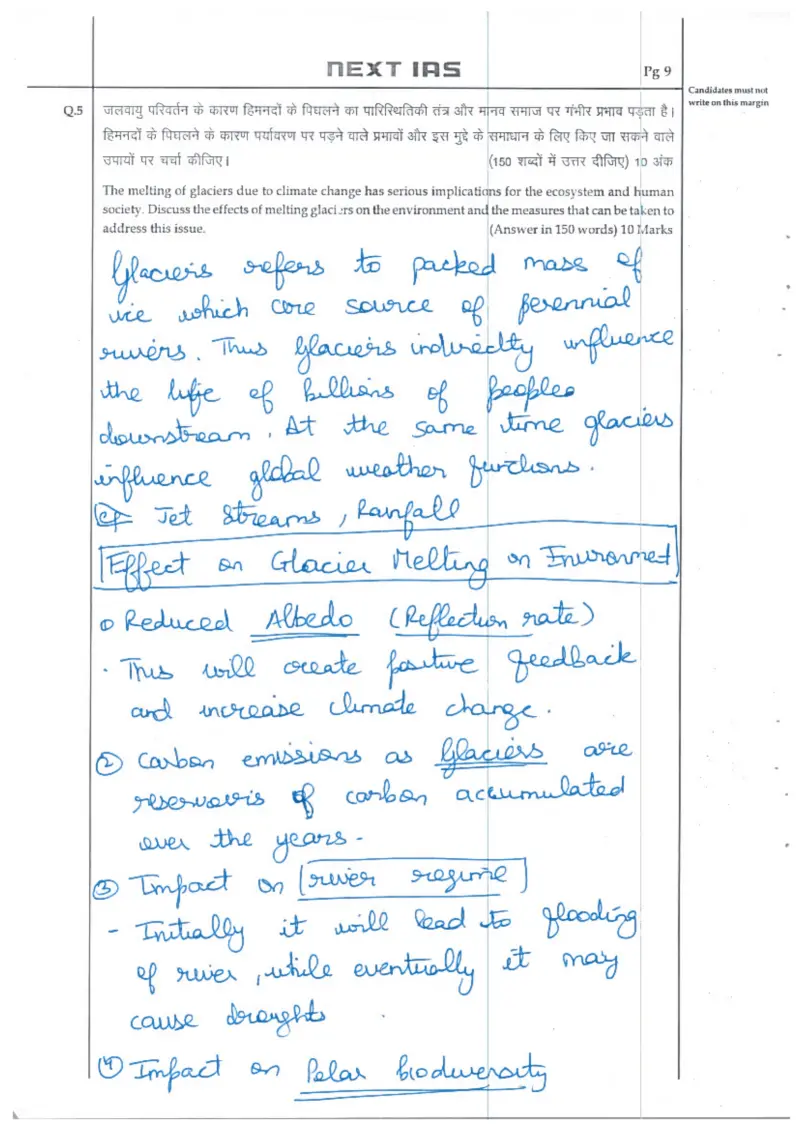 NEXT IAS
Pg 9
Candidates must not
write on this margin
Q.5 जलवायु परिवर्तन के कारण हिमनदों के पिघलने का पारिस्थितिकी तंत्र और मानव समाज पर गंभीर प्रभाव पड़ता है।
हिमनदों के पिघलने के कारण पर्यावरण पर पड़ने वाले प्रभावों और इस मुद्दे के समाधान के लिए किए जा सकने वाले
उपायों पर चर्चा कीजिए। (150 शब्दों में उत्तर दीजिए) 10 अंक
The melting of glaciers due to climate change has serious implications for the ecosystem and human
society. Discuss the effects of melting glaciers on the environment and the measures that can be taken to
address this issue. (Answer in 150 words) 10 Marks
Glaciers refers to packed mass of
ice which are source of perennial
rivers. Thus Glaciers indirectly influence
the life of billions of peoples
downstream. At the same time glaciers
influence global weather functions.
eg Jet Streams, Rainfall
Effect on Glacier Melting on Environment
① Reduced Albedo (Reflection rate)
· This will create positive feedback
and increase climate change.
② Carbon emissions as Glaciers are
reservoirs of carbon accumulated
over the years.
③ Impact on river regime
- Initially it will lead to flooding
of river, while eventually it may
cause droughts
④ Impact on Polar biodiversity